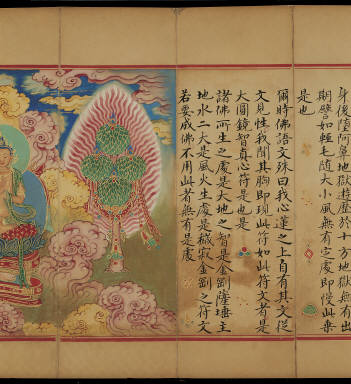 身後墮阿鼻地獄遊歷於十方地獄無有出
期譬如輕毛隨大小風無有定處即得此乗
是也
爾時佛語文殊曰我心蓮之上自有其文從
文見性我聞其胸即現此符如此符文者是
大圓鏡智真心符是也
諸佛所生之處是大地之智是金剛 主
地水二大是風火生處是 寂金剛之符文
若要成佛不用此者無有是處